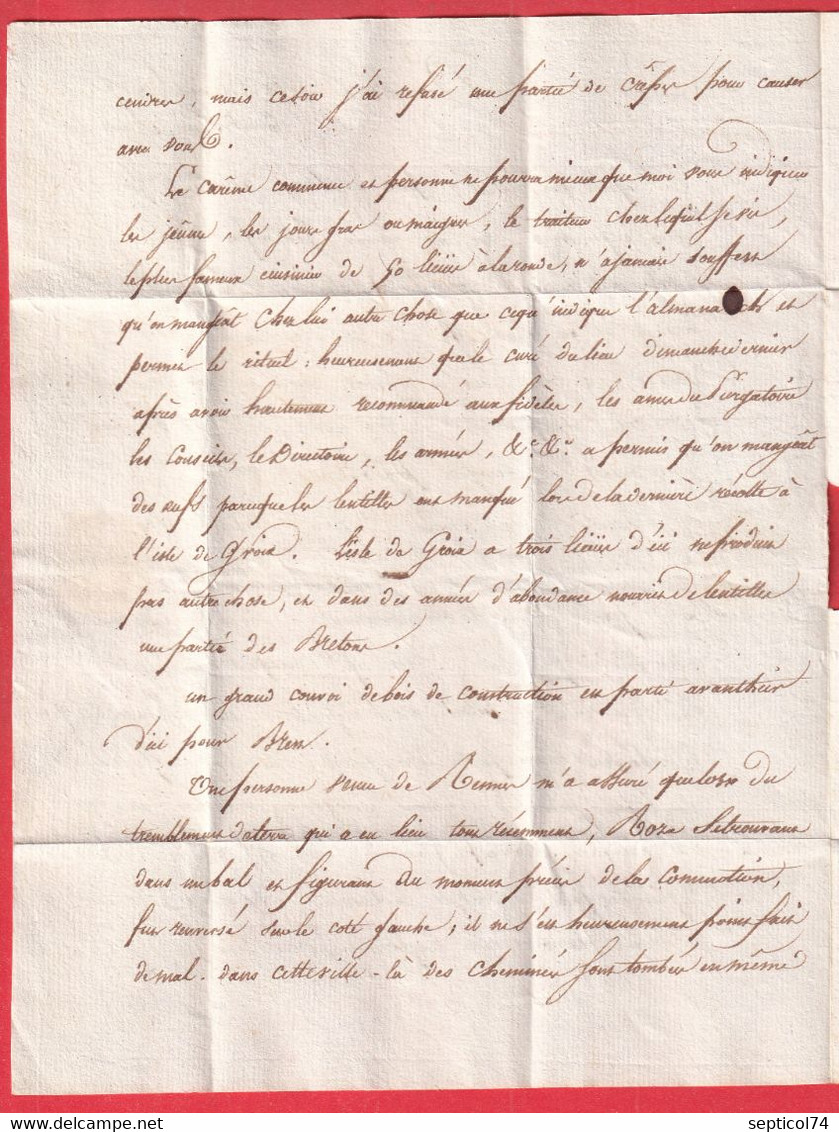 cendres, mais ce soir j'ai refusé une partie de Crêpes pour causer
avec vous.
Le carême commence et personne ne pourra mieux que moi vous indiquer
les jeûnes, les jours gras ou maigres, le traiteur chez lequel je vis,
le plus fameux cuisinier de 50 lieües à la ronde, n'a jamais souffert
qu'on mangeât chez lui autre chose que ce qu'indique l'almanach et
permet le rituel : heureusement que le curé du lieu dimanche dernier
après avoir hautement recommandé aux fidèles, les ames du Purgatoire
les Conseils, le Directoire, les armées, &c. &c. a permis qu'on mangeât
des œufs parceque les lentilles ont manqué lors de la dernière récolte à
l'isle de Groix. L'isle de Groix à trois lieües d'ici ne produit
pas autre chose, et dans des années d'abondance nourrit de lentilles
une partie des Bretons.
un grand convoi de bois de construction est parti avant hier
d'ici pour Brest.
Une personne venue de Rennes m'a assuré que lors du
tremblement de terre qui a eu lieu tout récemment, Roze se trouvant
dans un bal et figurant au moment précis de la commotion,
fut renversé sur le coté gauche ; il ne s'est heureusement point fait
de mal. dans cette ville-là des cheminées sont tombées en même
septicol74
www.delcampe.net